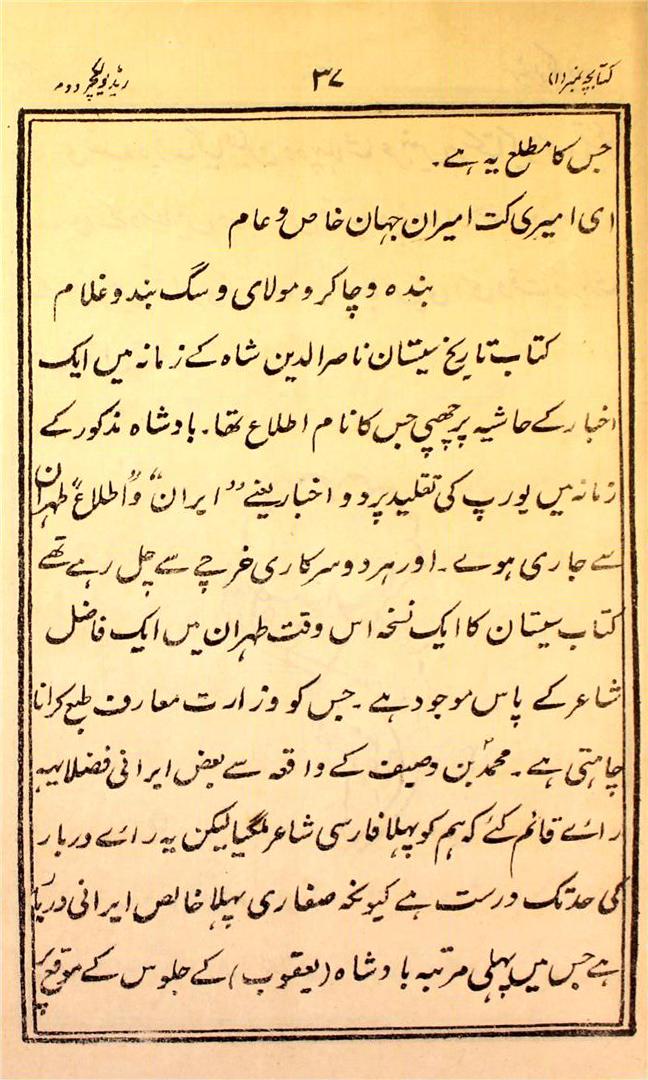 کتابچہ نمبر (۱) ۳۷ ریڈیو لکچر دوم
جس کا مطلع یہ ہے۔
ای امیری کت امیران جہان خاص و عام
بندہ و چاکر و مولای و سگ بند و غلام
کتاب تاریخ سیستان ناصر الدین شاہ کے زمانہ میں ایک
اخبار کے حاشیہ پر چھپی جس کا نام اطلاع تھا۔ بادشاہ مذکور کے
زمانہ میں یورپ کی تقلید پر دو اخبار یعنے ”ایران“ و ”اطلاع“ طہران
سے جاری ہوے۔ اور ہر دو سرکاری خرچے سے چل رہے تھے
کتاب سیستان کا ایک نسخہ اس وقت طہران میں ایک فاضل
شاعر کے پاس موجود ہے۔ جس کو وزارت معارف طبع کرانا
چاہتی ہے۔ محمدؐ بن وصیف کے واقعہ سے بعض ایرانی فضلا یہہ
راے قائم کئے کہ ہم کو پہلا فارسی شاعر ملگیا لیکن یہ راے دربار
کی حد تک درست ہے کیونکہ صفاری پہلا خالص ایرانی دربار
ہے جس میں پہلی مرتبہ بادشاہ (یعقوب) کے جلوس کے موقع پر